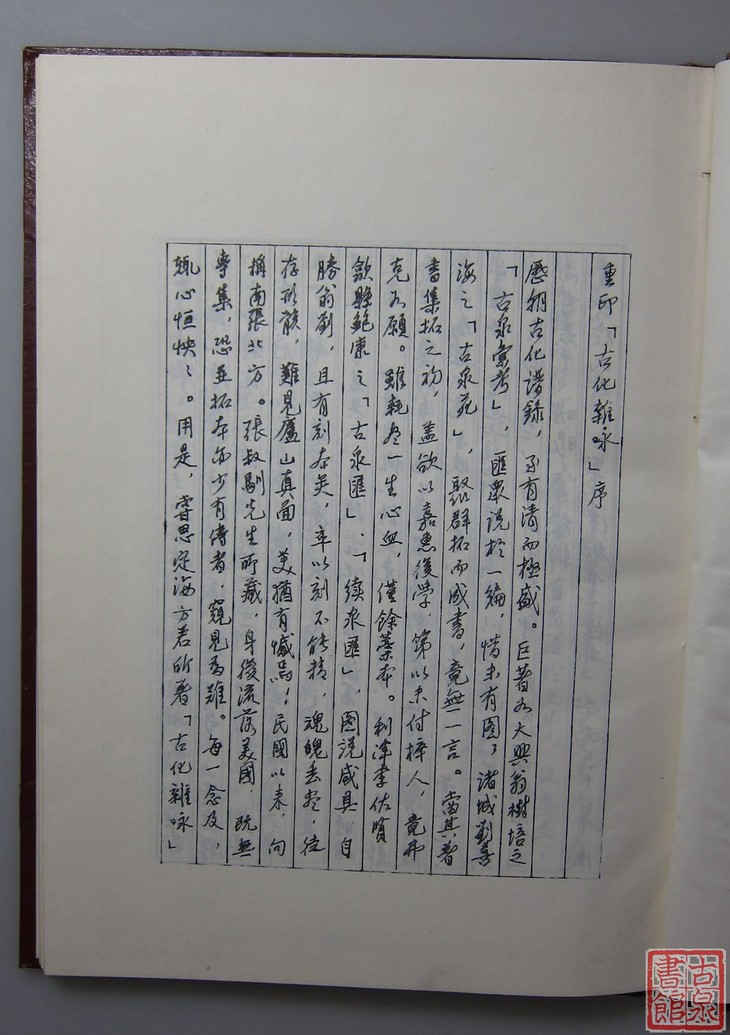 重印「古化雜咏」序
歷朝古化譜錄，至有清而極盛。巨著如大興翁樹培之
「古泉彙考」，匯眾說於一編，惜未有圖；諸城劉喜
海之「古泉苑」，聚群拓而成書，竟無一言。當其著
書集拓之初，蓋欲以嘉惠後學，第以未付梓人，竟弗
克如願。雖耗盡一生心血，僅餘藁本。利津李佐賢
歙縣鮑康之「古泉匯」、「續泉匯」，圖說咸具，自
勝翁劉，且有刻本矣，卒以刻不能精，魂魄丟盡，徒
存形骸，難見廬山真面，美猶有憾焉！民國以來，向
稱南張北方。張叔馴先生所藏，身後流落美國，既無
專集，恐並拓本亦少有傳者，窺見為難。每一念及，
輒心恒怏々。用是，嘗思定海方君所著「古化雜咏」
古泉
書館